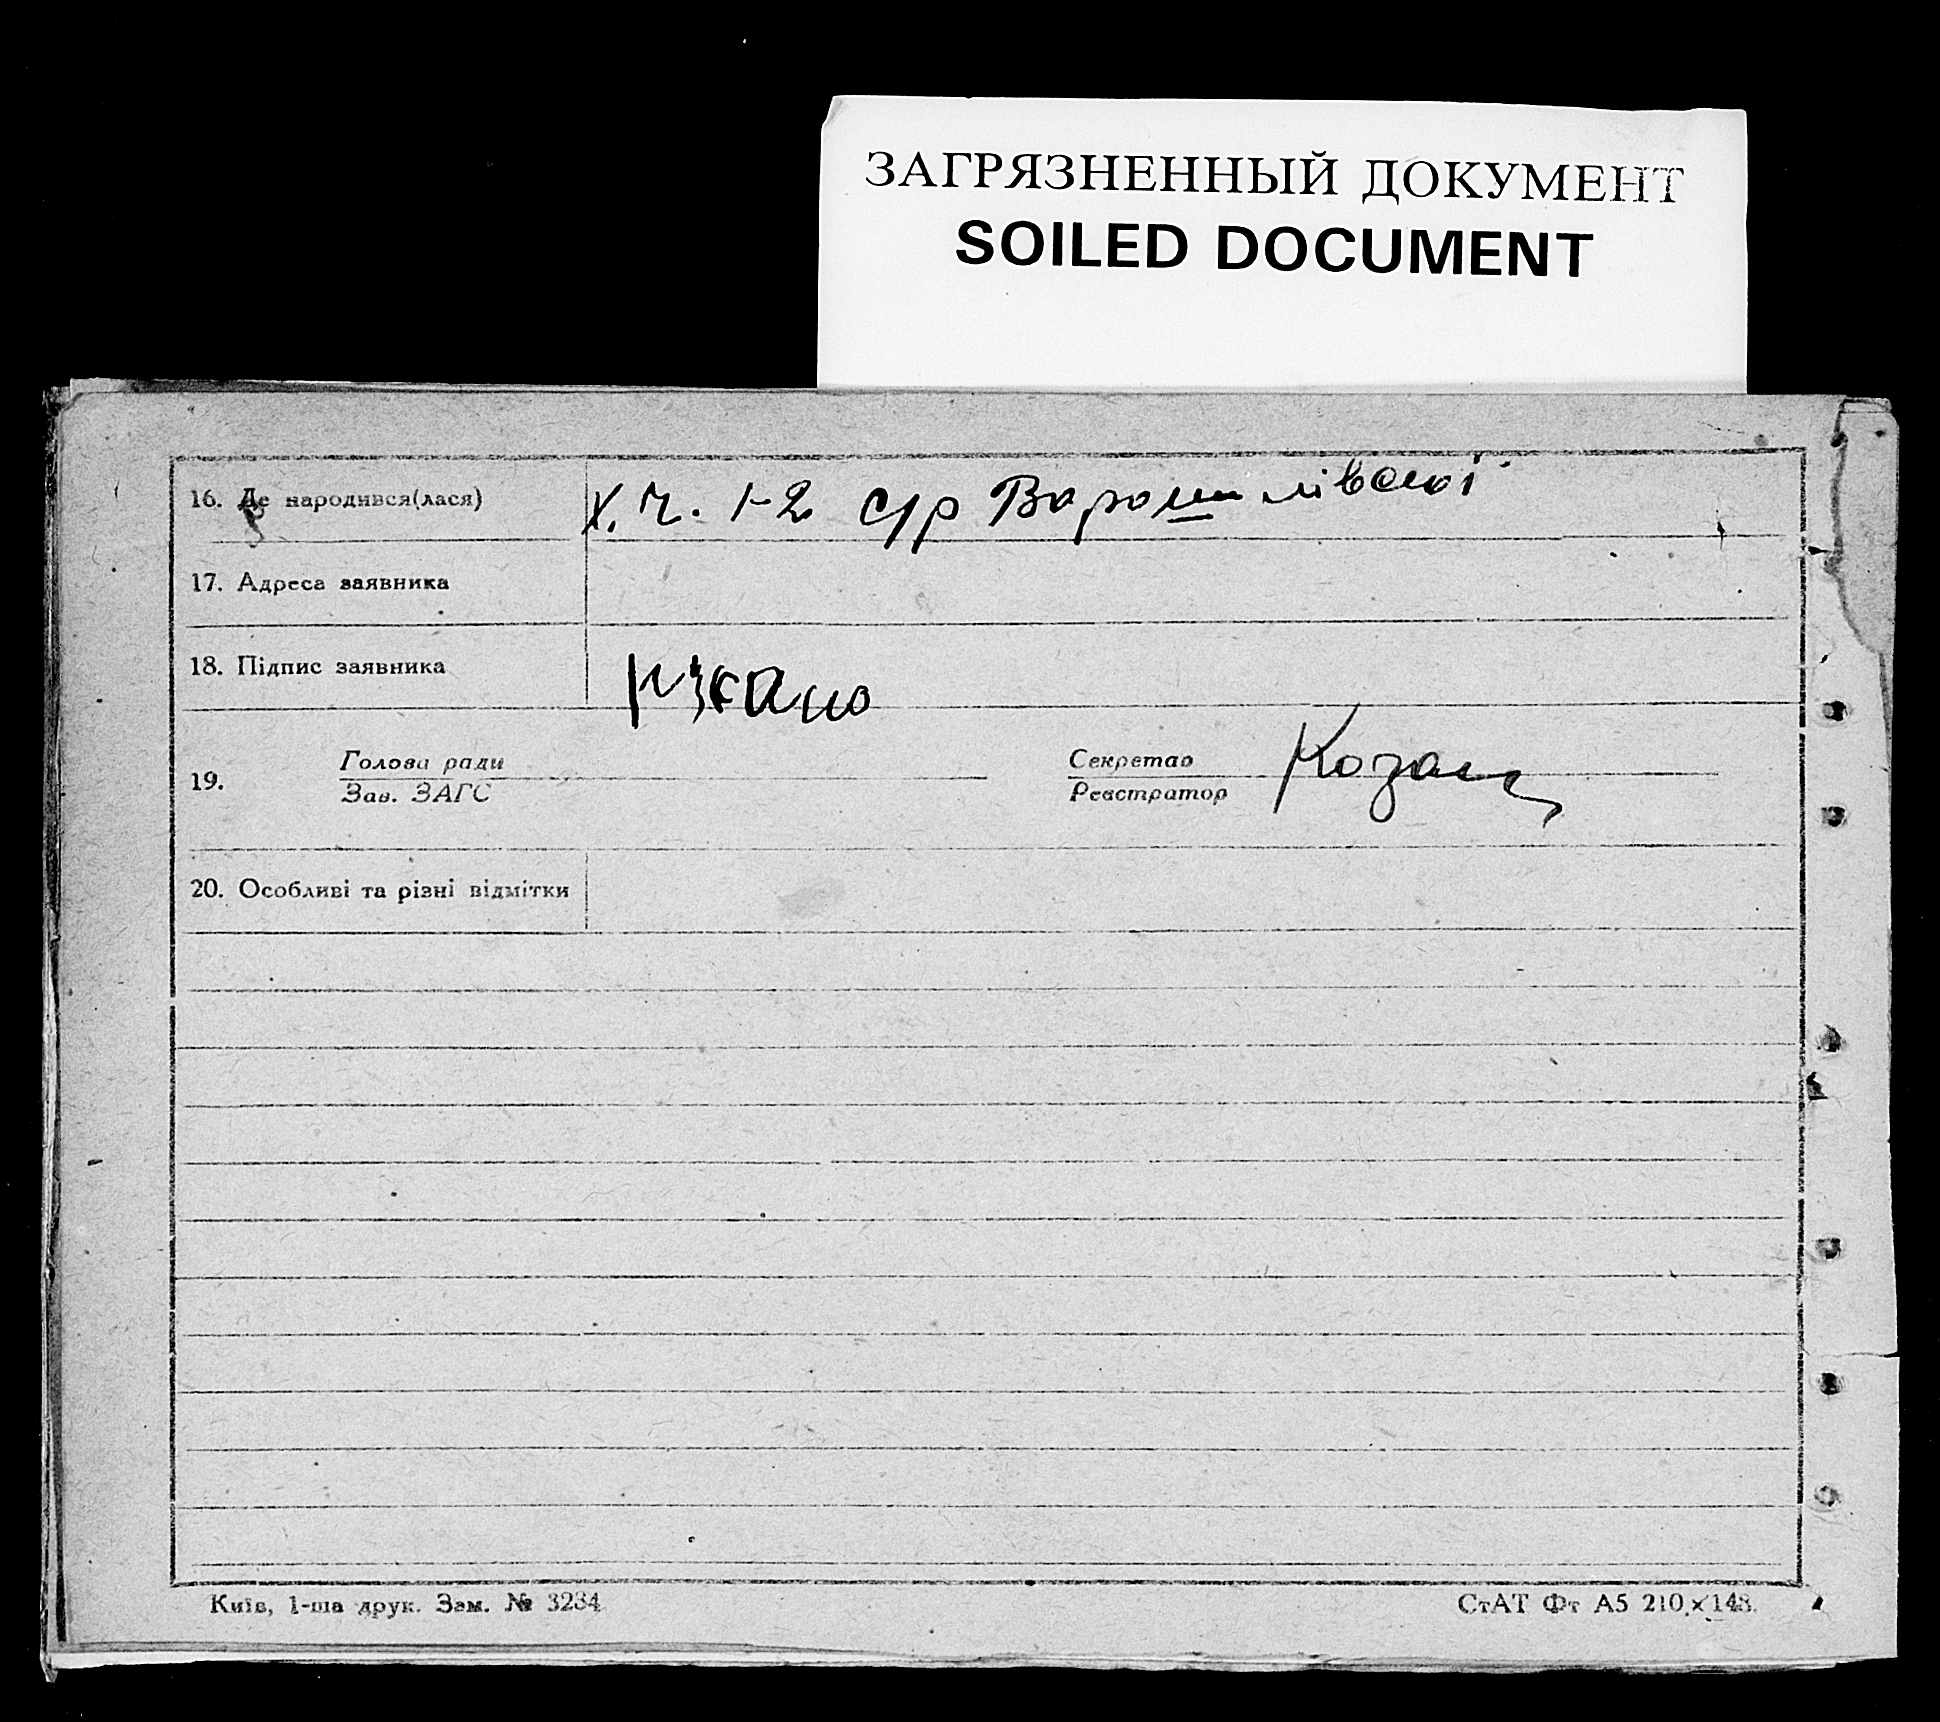 ЗАГРЯЗНЕННЫЙ ДОКУМЕНТ
SOILED DOCUMENT
16. Де народився(лася) Х. Ч. 1-2 с/р Ворошилівської
17. Адреса заявника
18. Підпис заявника
19. Голова ради
Зав. ЗАГС
Секретар
Реєстратор
20. Особливі та різні відмітки
Київ, 1-ша друк. Зам. № 3234
СтАТ Фт А5 210×148.